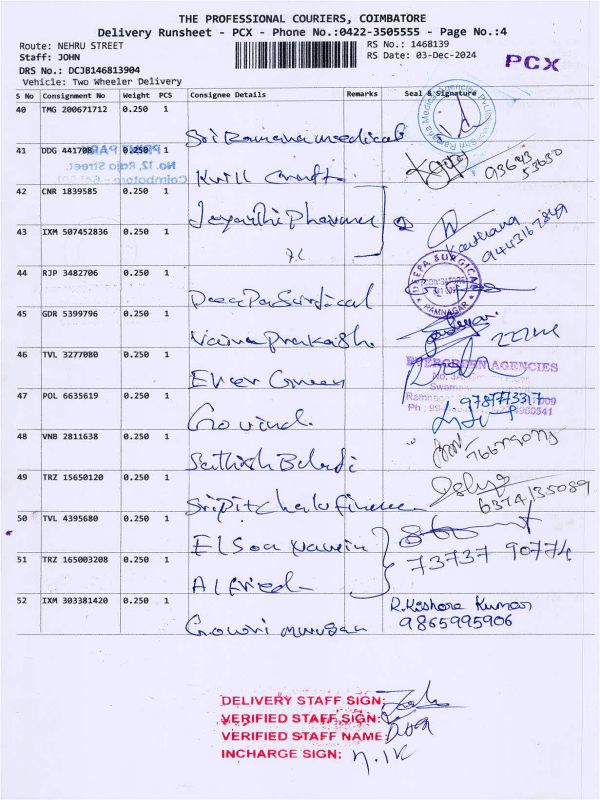 THE PROFESSIONAL COURIERS, COIMBATORE
Delivery Runsheet - PCX - Phone No.:0422-3505555 - Page No.:4
Route: NEHRU STREET
RS No.: 1468139
Staff: JOHN
RS Date: 03-Dec-2024
PCX
DRS No.: DCJB146813904
Vehicle: Two Wheeler Delivery
S No Consignment No Weight PCS Consignee Details Remarks Seal & Signature
40 TMG 200671712 0.250 1
Sri Ramana medical
41 DDG 441708 0.250 1
No. 12, Raja Street,
Coimbatore
93643 53630
42 CNR 1839585 0.250 1
Jayanthi Pharma
Keerthana
9443167849
43 IXM 507452836 0.250 1
44 RJP 3482706 0.250 1
DEEPA SURGICAL
COIMBATORE
RAMNAGAR
Deepa Surgical
45 GDR 5399796 0.250 1
Vaira Prakash
46 TVL 3277080 0.250 1
EVERGREEN AGENCIES
Ever Green
47 POL 6635619 0.250 1
Ramnagar
Ph :
Govind
48 VNB 2811638 0.250 1
Sathish Balaji
49 TRZ 15650120 0.250 1
6374135089
50 TVL 4395680 0.250 1
51 TRZ 165003208 0.250 1
73737 90774
Alfried
52 IXM 303381420 0.250 1
R.Kishore Kumar
9865995906
Gowri murugan
DELIVERY STAFF SIGN:
VERIFIED STAFF SIGN:
VERIFIED STAFF NAME:
INCHARGE SIGN: